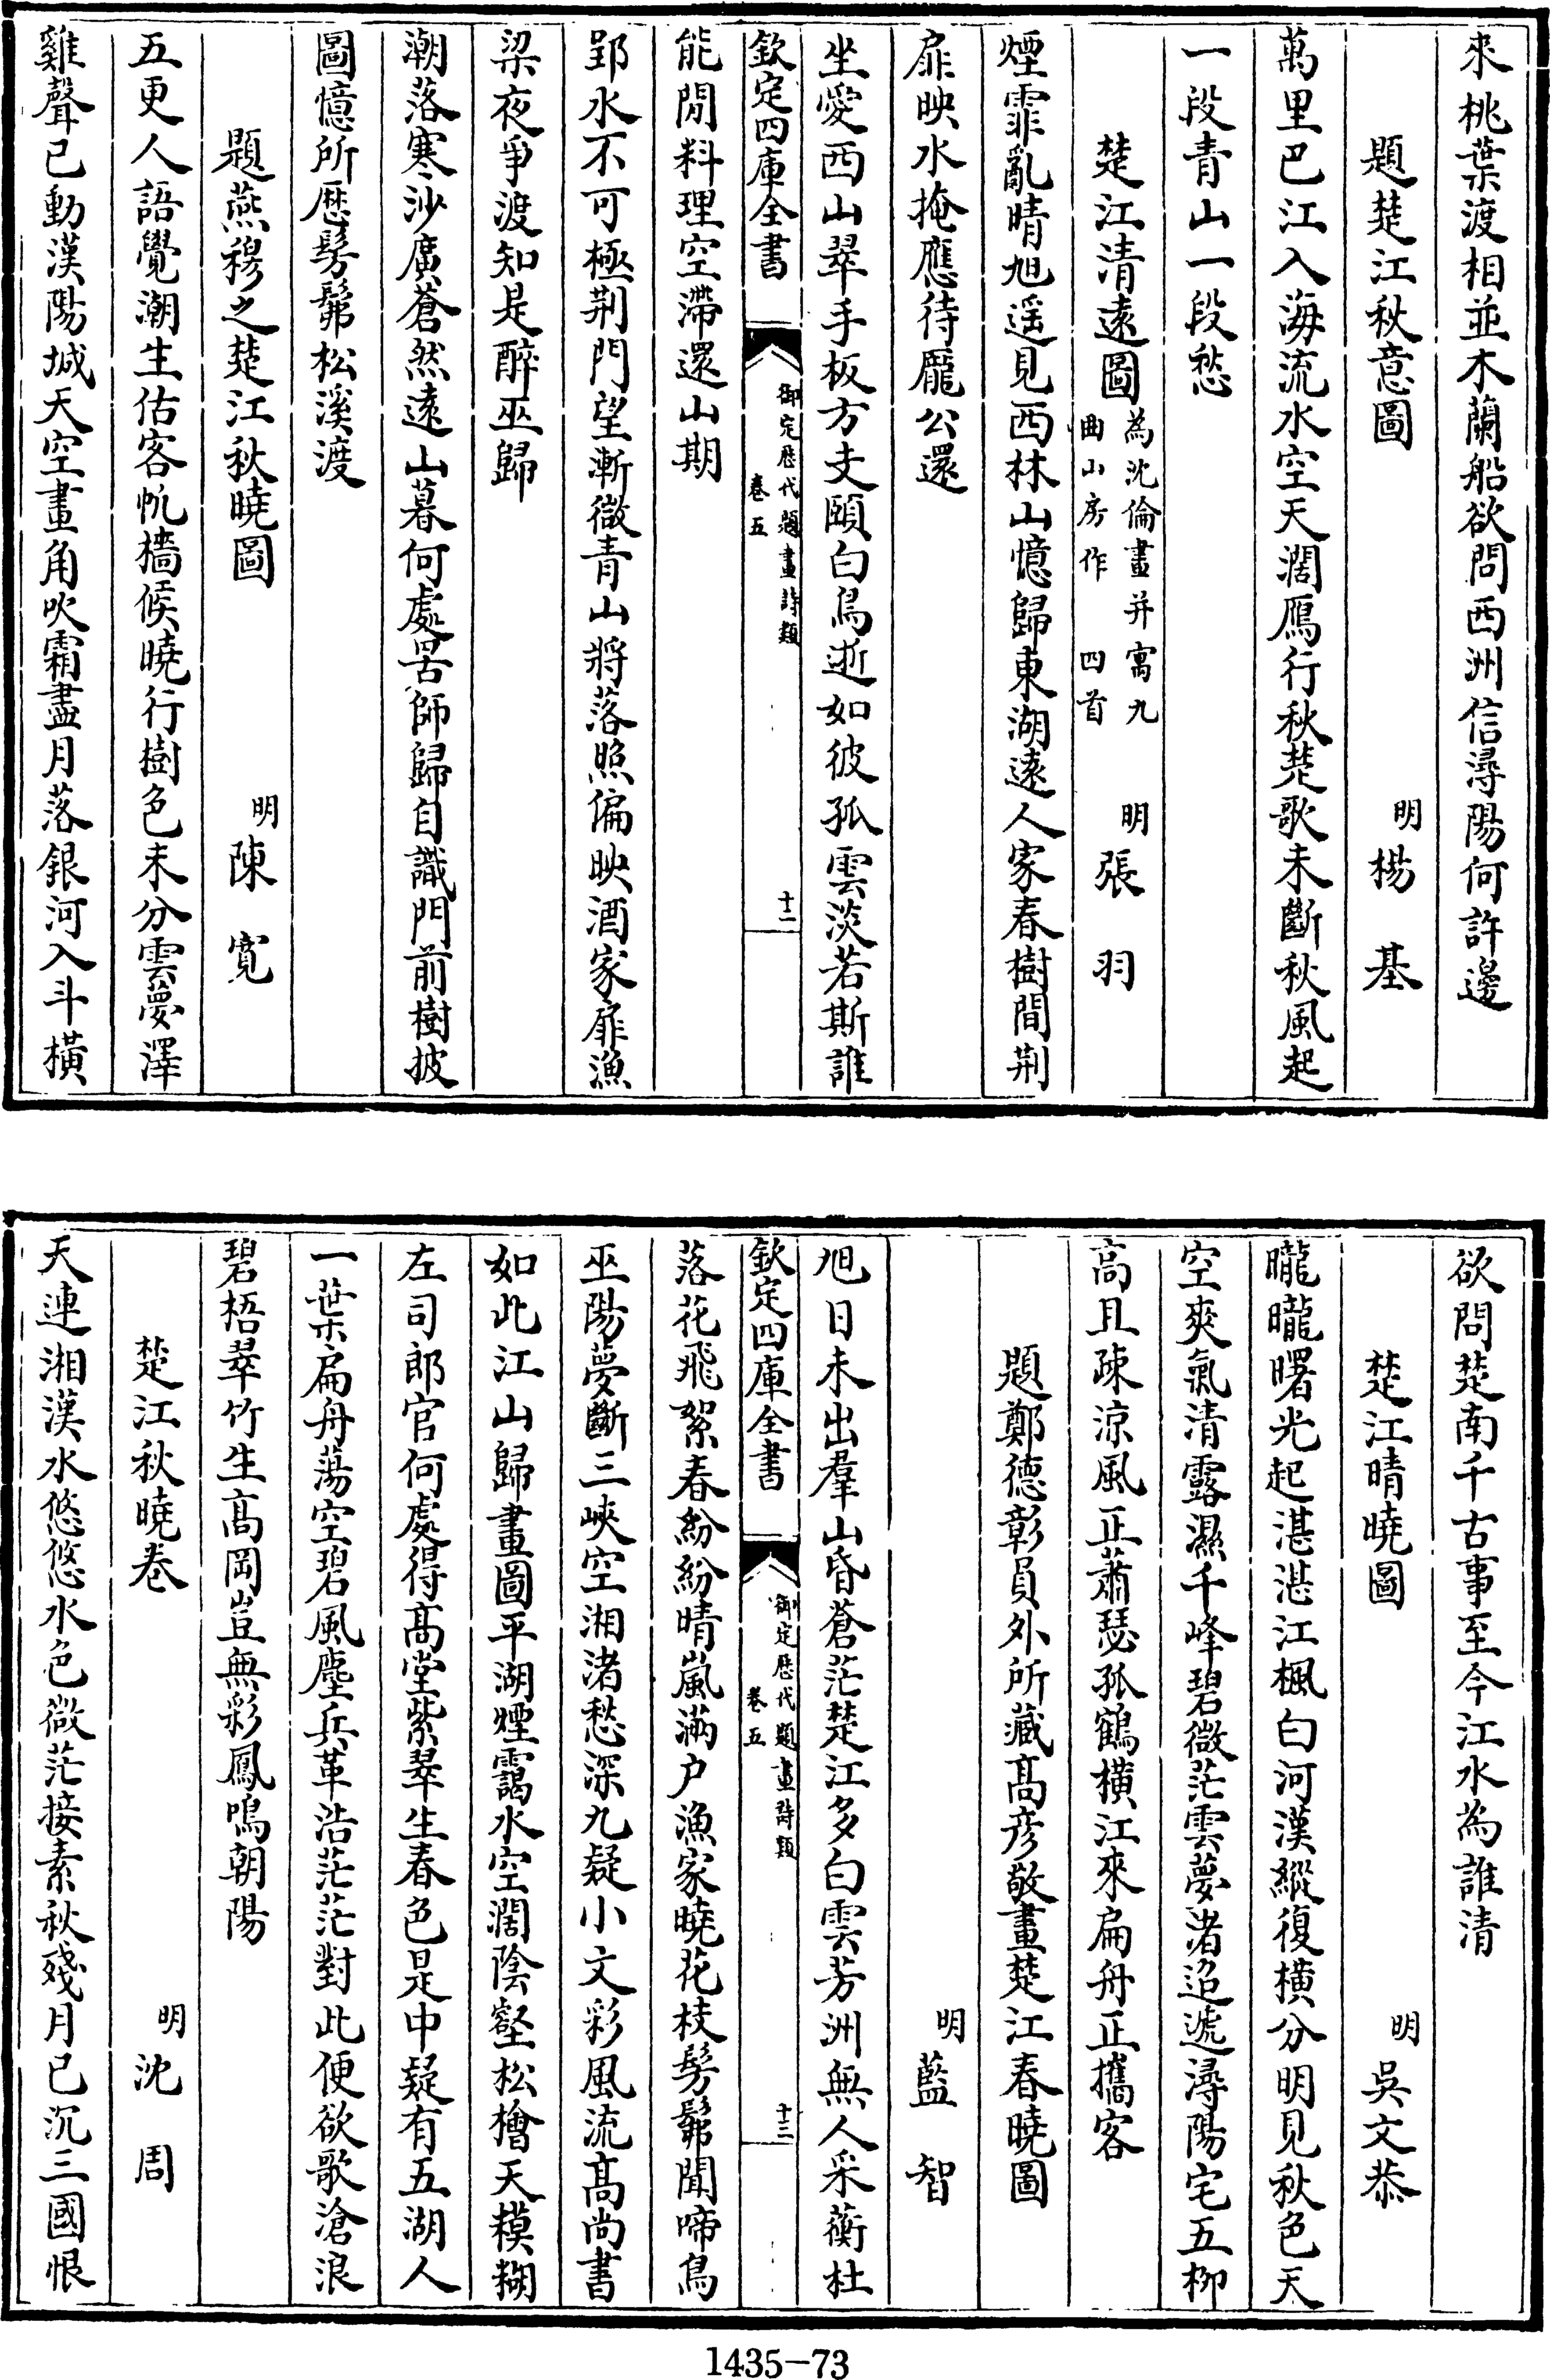 來桃葉渡相並木蘭船欲問西洲信潯陽何許邊
題楚江秋意圖 明 楊基
萬里巴江入海流水空天濶鴈行秋楚歌未斷秋風起
一段青山一段愁
楚江清遠圖 為沈倫畫并寓九曲山房作 四首 明 張羽
煙霏亂晴旭遥見西林山憶歸東湖遠人家春樹間荆
扉映水掩應待龎公還
坐愛西山翠手板方支頤白鳥逝如彼孤雲淡若斯誰
欽定四庫全書 御定歷代題畫詩類 卷五 十二
能閒料理空滯還山期
郢水不可極荆門望漸微青山將落照偏映酒家扉漁
梁夜爭渡知是醉巫歸
潮落寒沙廣蒼然遠山暮何處罟師歸自識門前樹披
圖憶所歷髣髴松溪渡
題燕穆之楚江秋曉圖 明 陳寛
五更人語覺潮生估客㠶檣候曉行樹色未分雲夢澤
雞聲已動漢陽城天空畫角吹霜盡月落銀河入斗横
欲問楚南千古事至今江水為誰清
楚江晴曉圖 明 吳文泰
曨曨曙光起湛湛江楓白河漢縱復横分明見秋色天
空爽氣清露濕千峰碧微茫雲夢渚迢遞潯陽宅五柳
高且疎涼風正蕭瑟孤鶴横江來扁舟正攜客
題鄭德彰員外所藏髙彦敬畫楚江春曉圖
明 藍智
旭日未出羣山昏蒼茫楚江多白雲芳洲無人采蘅杜
欽定四庫全書 御定歷代題畫詩類 卷五 十三
落花飛絮春紛紛晴嵐滿户漁家曉花枝髣髴聞啼鳥
巫陽夢斷三峽空湘渚愁深九疑小文彩風流髙尚書
如此江山歸畫圖平湖煙靄水空濶陰壑松檜天糢糊
左司郎官何處得髙堂紫翠生春色是中疑有五湖人
一葉扁舟蕩空碧風塵兵革浩茫茫對此便欲歌滄浪
碧梧翠竹生髙岡豈無彩鳳鳴朝陽
楚江秋曉卷 明 沈周
天連湘漢水悠悠水色微茫接素秋殘月已沉三國恨
1435-73